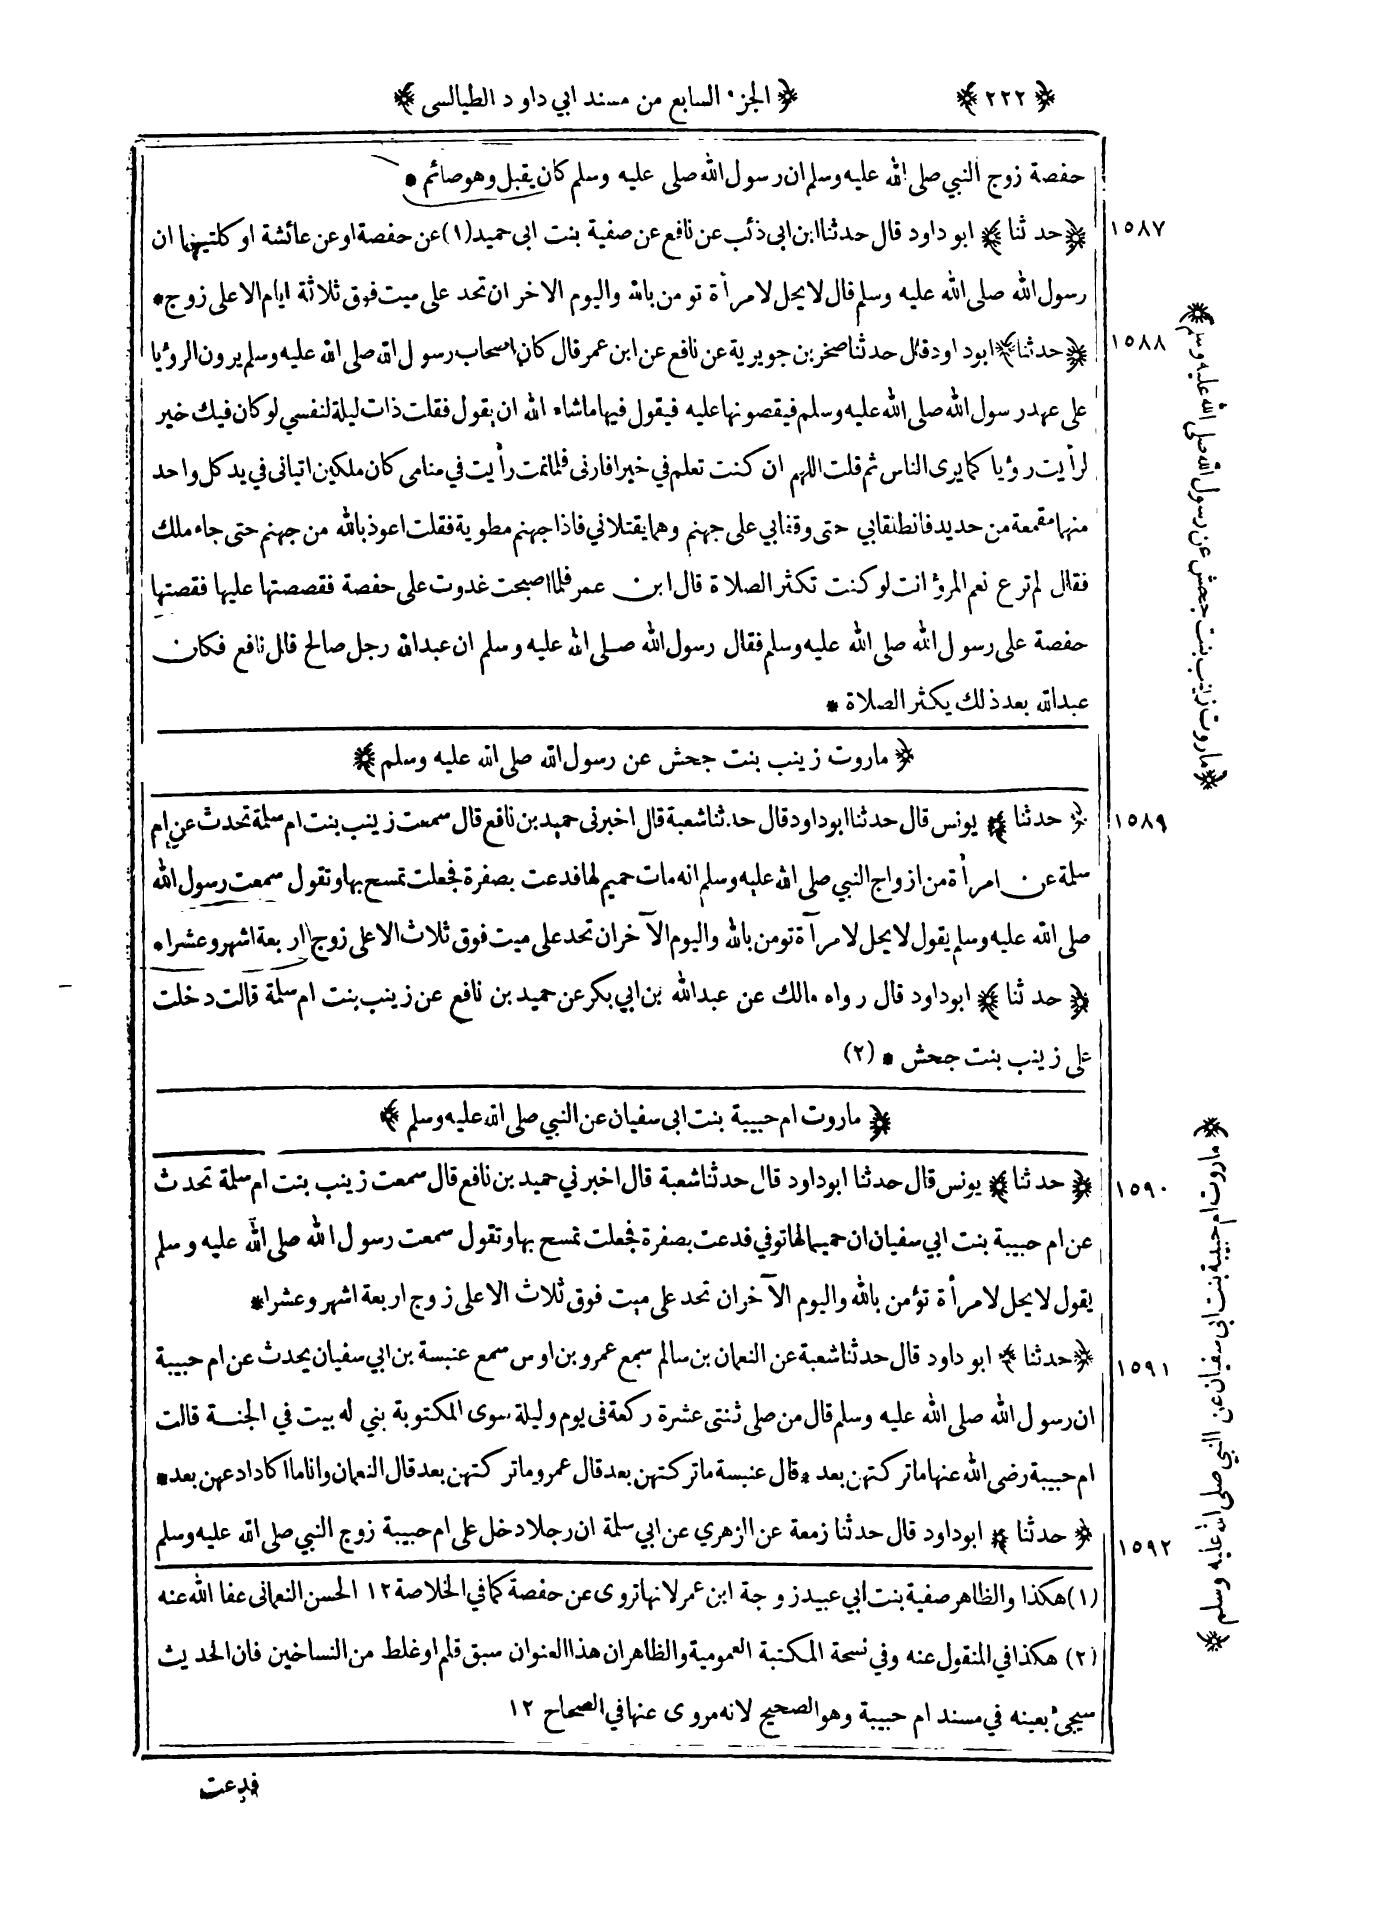 ﴿ ٢٢٢ ﴾ ﴿ الجزء السابع من مسند ابي داود الطيالسى ﴾
حفصة زوج النبي صلى الله عليه وسلم ان رسول الله صلى عليه وسلم كان يقبل وهو صائم *
١٥٨٧ ﴿ حدثنا ﴾ ابوداود قال حدثنا ابن ابى ذئب عن نافع عن صفية بنت ابى حميد (١) عن حفصة او عن عائشة او كلتيهما ان
رسول الله صلى الله عليه وسلم قال لا يحل لامرأة تومن بالله واليوم الاخر ان تحد على ميت فوق ثلاثة ايام الا على زوج *
١٥٨٨ ﴿ حدثنا ﴾ ابوداود قال حدثنا صخر بن جويرية عن نافع عن ابن عمر قال كان اصحاب رسول الله صلى الله عليه وسلم يرون الرؤيا
على عهد رسول الله صلى الله عليه وسلم فيقصونها عليه فيقول فيها ماشاء الله ان يقول فقلت ذات ليلة لنفسي لو كان فيك خير
لرأيت رؤيا كما يرى الناس ثم قلت اللهم ان كنت تعلم في خيرا فارنى فلما نمت رأيت في منامى كان ملكين اتيانى في يد كل واحد
منهما مقمعة من حديد فانطلقابي حتى وقفابي على جهنم وهما يقتلاني فاذا جهنم مطوية فقلت اعوذ بالله من جهنم حتى جاء ملك
فقال لم ترع نعم المرؤ انت لو كنت تكثر الصلاة قال ابن عمر فلما اصبحت غدوت على حفصة فقصصتها عليها فقصتها
حفصة على رسول الله صلى الله عليه وسلم فقال رسول الله صلى الله عليه وسلم ان عبدالله رجل صالح قال نافع فكان
عبدالله بعد ذلك يكثر الصلاة *
﴿ ماروت زينب بنت جحش عن رسول الله صلى الله عليه وسلم ﴾
﴿ ماروت زينب بنت جحش عن رسول الله صلى الله عليه وسلم ﴾
١٥٨٩ ﴿ حدثنا ﴾ يونس قال حدثنا ابوداود قال حدثنا شعبة قال اخبرنى حميد بن نافع قال سمعت زينب بنت ام سلمة تحدث عن ام
سلمة عن امرأة من ازواج النبي صلى الله عليه وسلم انه مات حميم لها فدعت بصفرة فجعلت تمسح بها وتقول سمعت رسول الله
صلى الله عليه وسلم يقول لا يحل لامرآة تومن بالله واليوم الآخر ان تحد على ميت فوق ثلاث الا على زوج اربعة اشهر وعشرا *
﴿ حدثنا ﴾ ابوداود قال رواه مالك عن عبدالله بن ابي بكر عن حميد بن نافع عن زينب بنت ام سلمة قالت دخلت
على زينب بنت جحش * (٢)
﴿ ماروت ام حبيبة بنت ابى سفيان عن النبي صلى الله عليه وسلم ﴾
﴿ ماروت ام حبيبة بنت ابى سفيان عن النبي صلى الله عليه وسلم ﴾
١٥٩٠ ﴿ حدثنا ﴾ يونس قال حدثنا ابوداود قال حدثنا شعبة قال اخبرني حميد بن نافع قال سمعت زينب بنت ام سلمة تحدث
عن ام حبيبة بنت ابي سفيان ان حميما لها توفي فدعت بصفرة فجعلت تمسح بها وتقول سمعت رسول الله صلى الله عليه وسلم
يقول لا يحل لامرأة تؤمن بالله واليوم الآخر ان تحد على ميت فوق ثلاث الا على زوج اربعة اشهر وعشرا *
١٥٩١ ﴿ حدثنا ﴾ ابوداود قال حدثنا شعبة عن النعمان بن سالم سمع عمرو بن اوس سمع عنبسة بن ابي سفيان يحدث عن ام حبيبة
ان رسول الله صلى الله عليه وسلم قال من صلى ثنتى عشرة ركعة فى يوم وليلة سوى المكتوبة بني له بيت في الجنة قالت
ام حبيبة رضى الله عنها ماتركتهن بعد * قال عنبسة ماتركتهن بعد قال عمرو ماتركتهن بعد قال النعمان وانا ما اكاد ادعهن بعد *
١٥٩٢ ﴿ حدثنا ﴾ ابوداود قال حدثنا زمعة عن الزهري عن ابي سلمة ان رجلا دخل على ام حبيبة زوج النبي صلى الله عليه وسلم
(١) هكذا والظاهر صفية بنت ابي عبيد زوجة ابن عمر لانها تروى عن حفصة كما في الخلاصة ١٢ الحسن النعمانى عفا الله عنه
(٢) هكذا في المنقول عنه وفي نسحة المكتبة العمومية والظاهر ان هذا العنوان سبق قلم او غلط من النساخين فان الحديث
سيجئ بعينه في مسند ام حبيبة وهو الصحيح لانه مروى عنها في الصحاح ١٢
فدعت